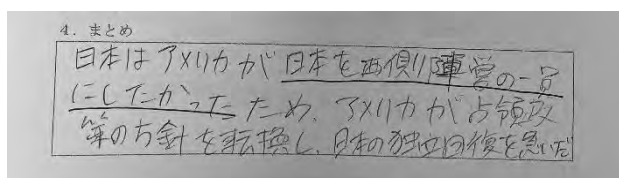 4. まとめ
日本はアメリカが日本を西側陣営の一員
にしたかったため、アメリカが占領政
策の方針を転換し、日本の独立回復を急いだ